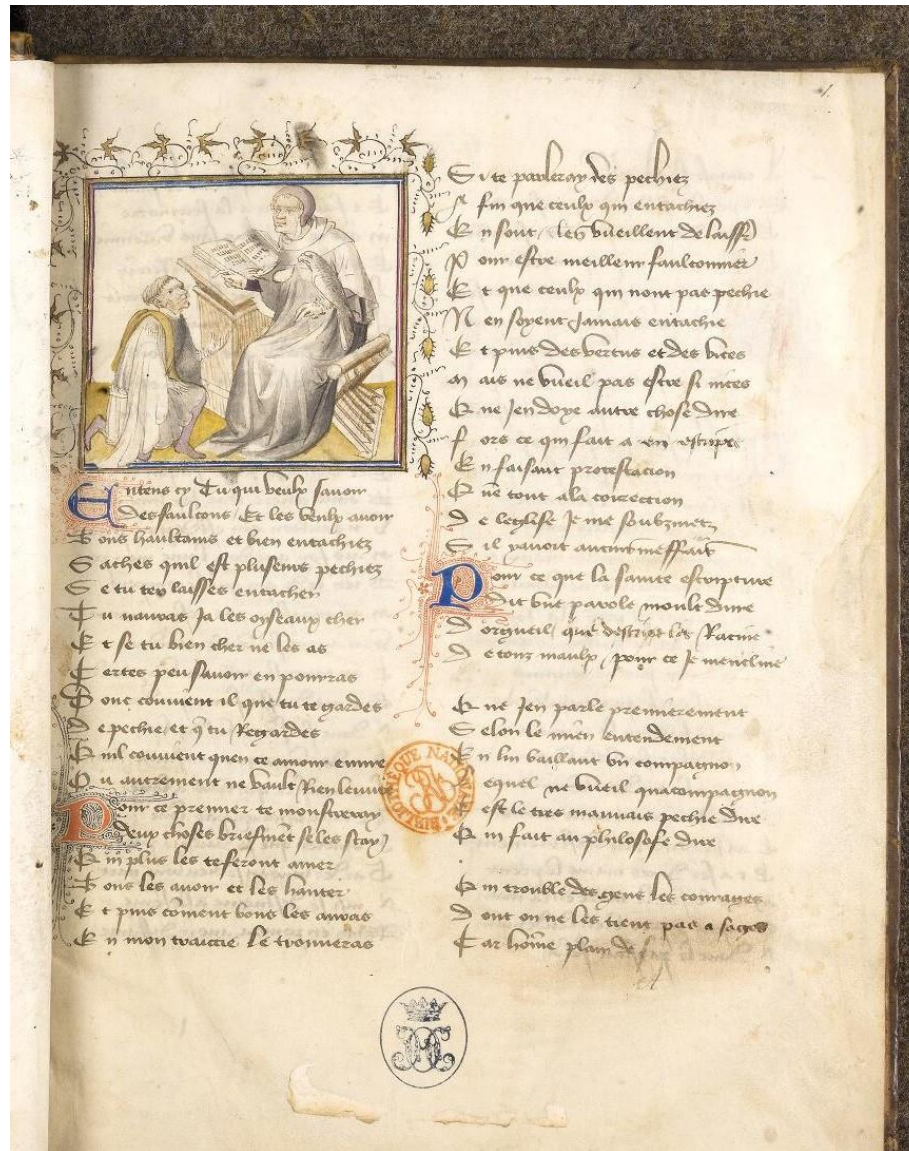 Entens cy Tu qui veulx savoir
des faulcons / Et les veulx avoir
Bons haultains et bien entachiez
Saches quil est plusieurs pechiez
Se tu tey laisses entacher
Tu nauras Ja les oyseaux cher
Et se tu bien cher ne les as
Certes peu savoir en pourras
Donc couvient il que tu te gardes
De pechie / et q tu Regardes
Quil couvient quen ce amour
Ou autrement ne vault Rien
Pour ce premier te monstreray
Deux choses briefmet se les scay
Qui plus les te feront amer
Bons les avoir et les hanter
Et puis coment bons les auras
En mon traictie le trouveras
Si te parleray des pechiez
A fin que ceulx qui entachiez
En sont / les vueillent delaissr
Pour estre meilleur faulconnier
Et que ceulx qui nont pas pechie
Nen soyent Jamais entachie
Et puis des vertus et des vices
Mais ne vueil pas estre si nices
Que Jen doye autre chose dire
Fors ce qui fait a
En faisant protestacion
Que tout a la correction
De leglise Je me soubzmetz
Sil y avoit
Pour ce que la sainte escripture
Dit une parole moult dure
Dorgueil / que des Racine
De touz maulx / pour ce Je mencline
Que Jen parle premierement
Selon le mien entendement
En lin vaillant un compagnon
equel ne vueil qua compagnon
est le tres mauvais pechie dire
Qui fait au philosofe dire
Qui trouble des gens les courages
Dont on ne les tient pas a sages
Car home plain de